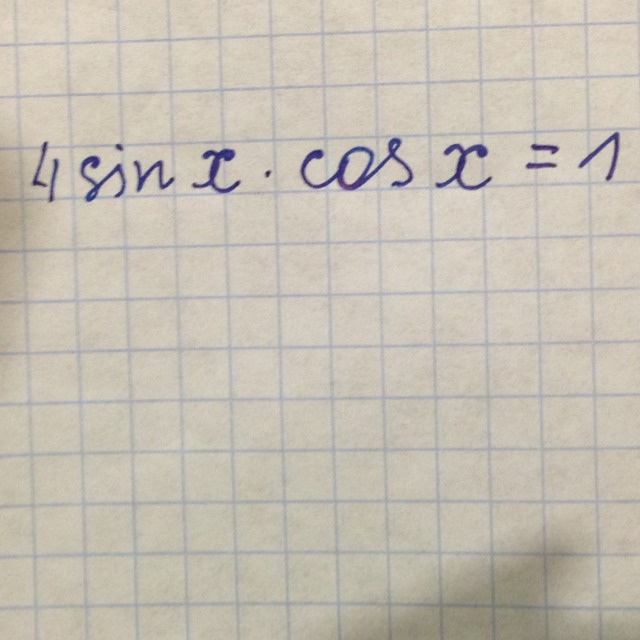 4 sin x · cos x = 1